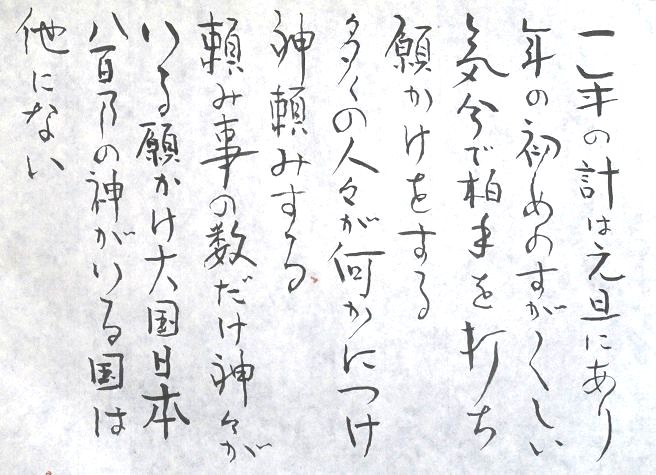 一年の計は元旦にあり
年の初めのすがくしい
気分で柏手を打ち
願かけをする
多くの人々が何かにつけ
神頼みする
頼み事の数だけ神々が
いる願かけ大国日本
八百万の神がいる国は
他にない